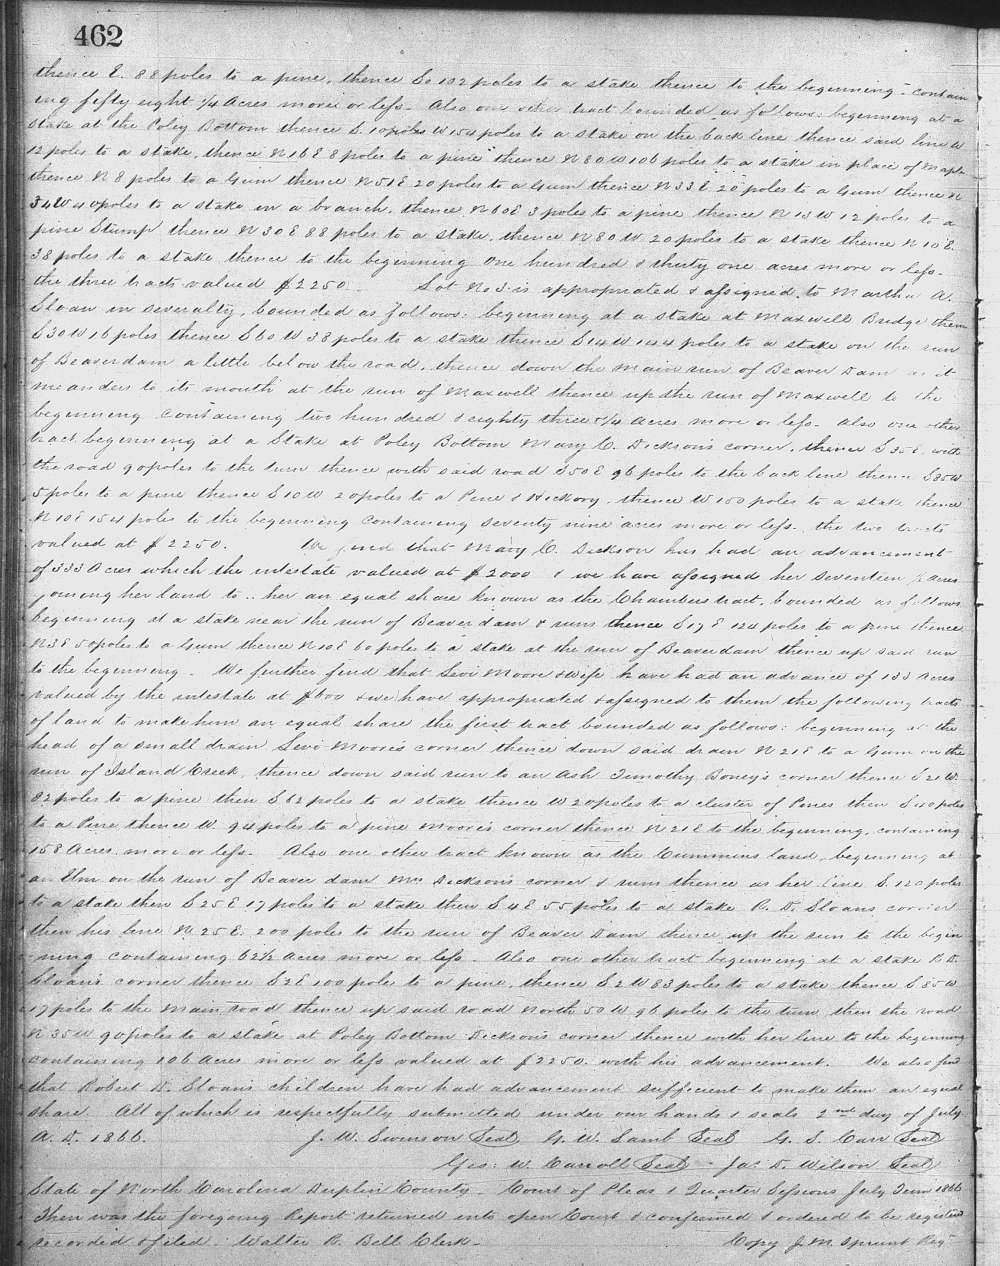 462
thence E. 88 poles to a pine, thence So 102 poles to a stake thence to the beginning - contain
ing fifty eight ¼ Acres more or less - Also one other tract bounded as follows: beginning at a
stake at the Poley Bottom thence S. 10 poles W 154 poles to a stake on the back line thence said line W
12 poles to a stake, thence N 16 E 8 poles to a pine thence N 80 W 106 poles to a stake in place of Maple
thence N 8 poles to a Gum thence N 51 E 20 poles to a Gum thence N 33 E 20 poles to a Gum thence N
34 W 40 poles to a stake in a branch, thence N 60 E 3 poles to a pine thence N 13 W 12 poles to a
pine Stump thence N 30 E 88 poles to a stake, thence N 80 W 20 poles to a stake thence N 10 E
38 poles to a stake thence to the beginning One hundred & thirty one acres more or less -
the three tracts valued $2250. Lot No 3 is appropriated & assigned to Martha A.
Sloan in severalty, bounded as follows: beginning at a stake at Maxwell Bridge thence
S 30 W 16 poles thence S 60 W 38 poles to a stake thence S 14 W 144 poles to a stake on the run
of Beaverdam a little below the road, thence down the main run of Beaver Dam as it
meanders to its mouth at the run of Maxwell thence up the run of Maxwell to the
beginning containing two hundred & eighty three ¼ Acres more or less. Also one other
tract beginning at a Stake at Poley Bottom Mary C. Dickson's corner, thence S 35 E. with
the road 90 poles to the turn thence with said road S 50 E 96 poles to the back line thence S 85 W
5 poles to a pine thence S 10 W 20 poles to a Pine & Hickory, thence W 100 poles to a stake thence
N 10 E 154 poles to the beginning containing seventy nine acres more or less. the two tracts
valued at $2250. We find that Mary C. Dickson has had an advancement
of 333 Acres which the intestate valued at $2000 & we have assigned her seventeen ½ acres
joining her land to .. her an equal share known as the Chambers tract, bounded as follows
beginning at a stake near the run of Beaver dam & runs thence S 17 E 124 poles to a pine thence
N 3 E 50 poles to a Gum thence N 10 E 60 poles to a stake at the run of Beaverdam thence up said run
to the beginning - We further find that Levi Moore & wife have had an advance of 133 acres
valued by the intestate at $600 & we have appropriated & assigned to them the following tracts
of land to make him an equal share the first tract bounded as follows: beginning at the
head of a small drain Levi Moore's corner thence down said drain N 21 E to a Gum on the
run of Island Creek, thence down said run to an Ash Timothy Boney's corner thence S 21 W.
82 poles to a pine then S 62 poles to a stake thence W 20 poles to a cluster of Pines then S 110 poles
to a Pine thence W 94 poles to a pine Moore's corner thence N 21 E to the beginning, containing
158 Acres more or less. Also one other tract known as the Cummins land, beginning at
an Elm on the run of Beaver dam Mrs Dickson's corner & runs thence as her line S. 120 poles
to a stake then S 25 E 17 poles to a stake then S 4 E 55 poles to a stake R. D. Sloans corner
then his line N 25 E. 200 poles to the run of Beaver Dam thence up the run to the begin
ning containing 62½ Acres more or less. Also one other tract beginning at a stake R. D.
Sloan's corner thence S 2 E 100 poles to a pine, thence S 2 W 83 poles to a stake thence S 85 W
17 poles to the Main road thence up said road North 50 W 96 poles to the turn then the road
N 35 W 90 poles to a stake at Poley Bottom Dickson's corner thence with her line to the beginning
containing 106 Acres more or less valued at $2250. with his advancement. We also find
that Robert D. Sloans children have had advancement sufficient to make them an equal
share. All of which is respectfully submitted under our hands & seals 2nd day of July
A. D. 1866. J. W. Swinson Seal G. W. Lamb Seal G. S. Carr Seal
Geo: W. Carroll Seal - Jas D. Wilson Seal
State of North Carolina Duplin County - Court of Pleas & Quarter Sessions July Term 1866
Then was the foregoing Report returned into open Court & confirmed & ordered to be registered
recorded & filed. Walter R. Bell Clerk - Copy J. M. Sprunt Regr